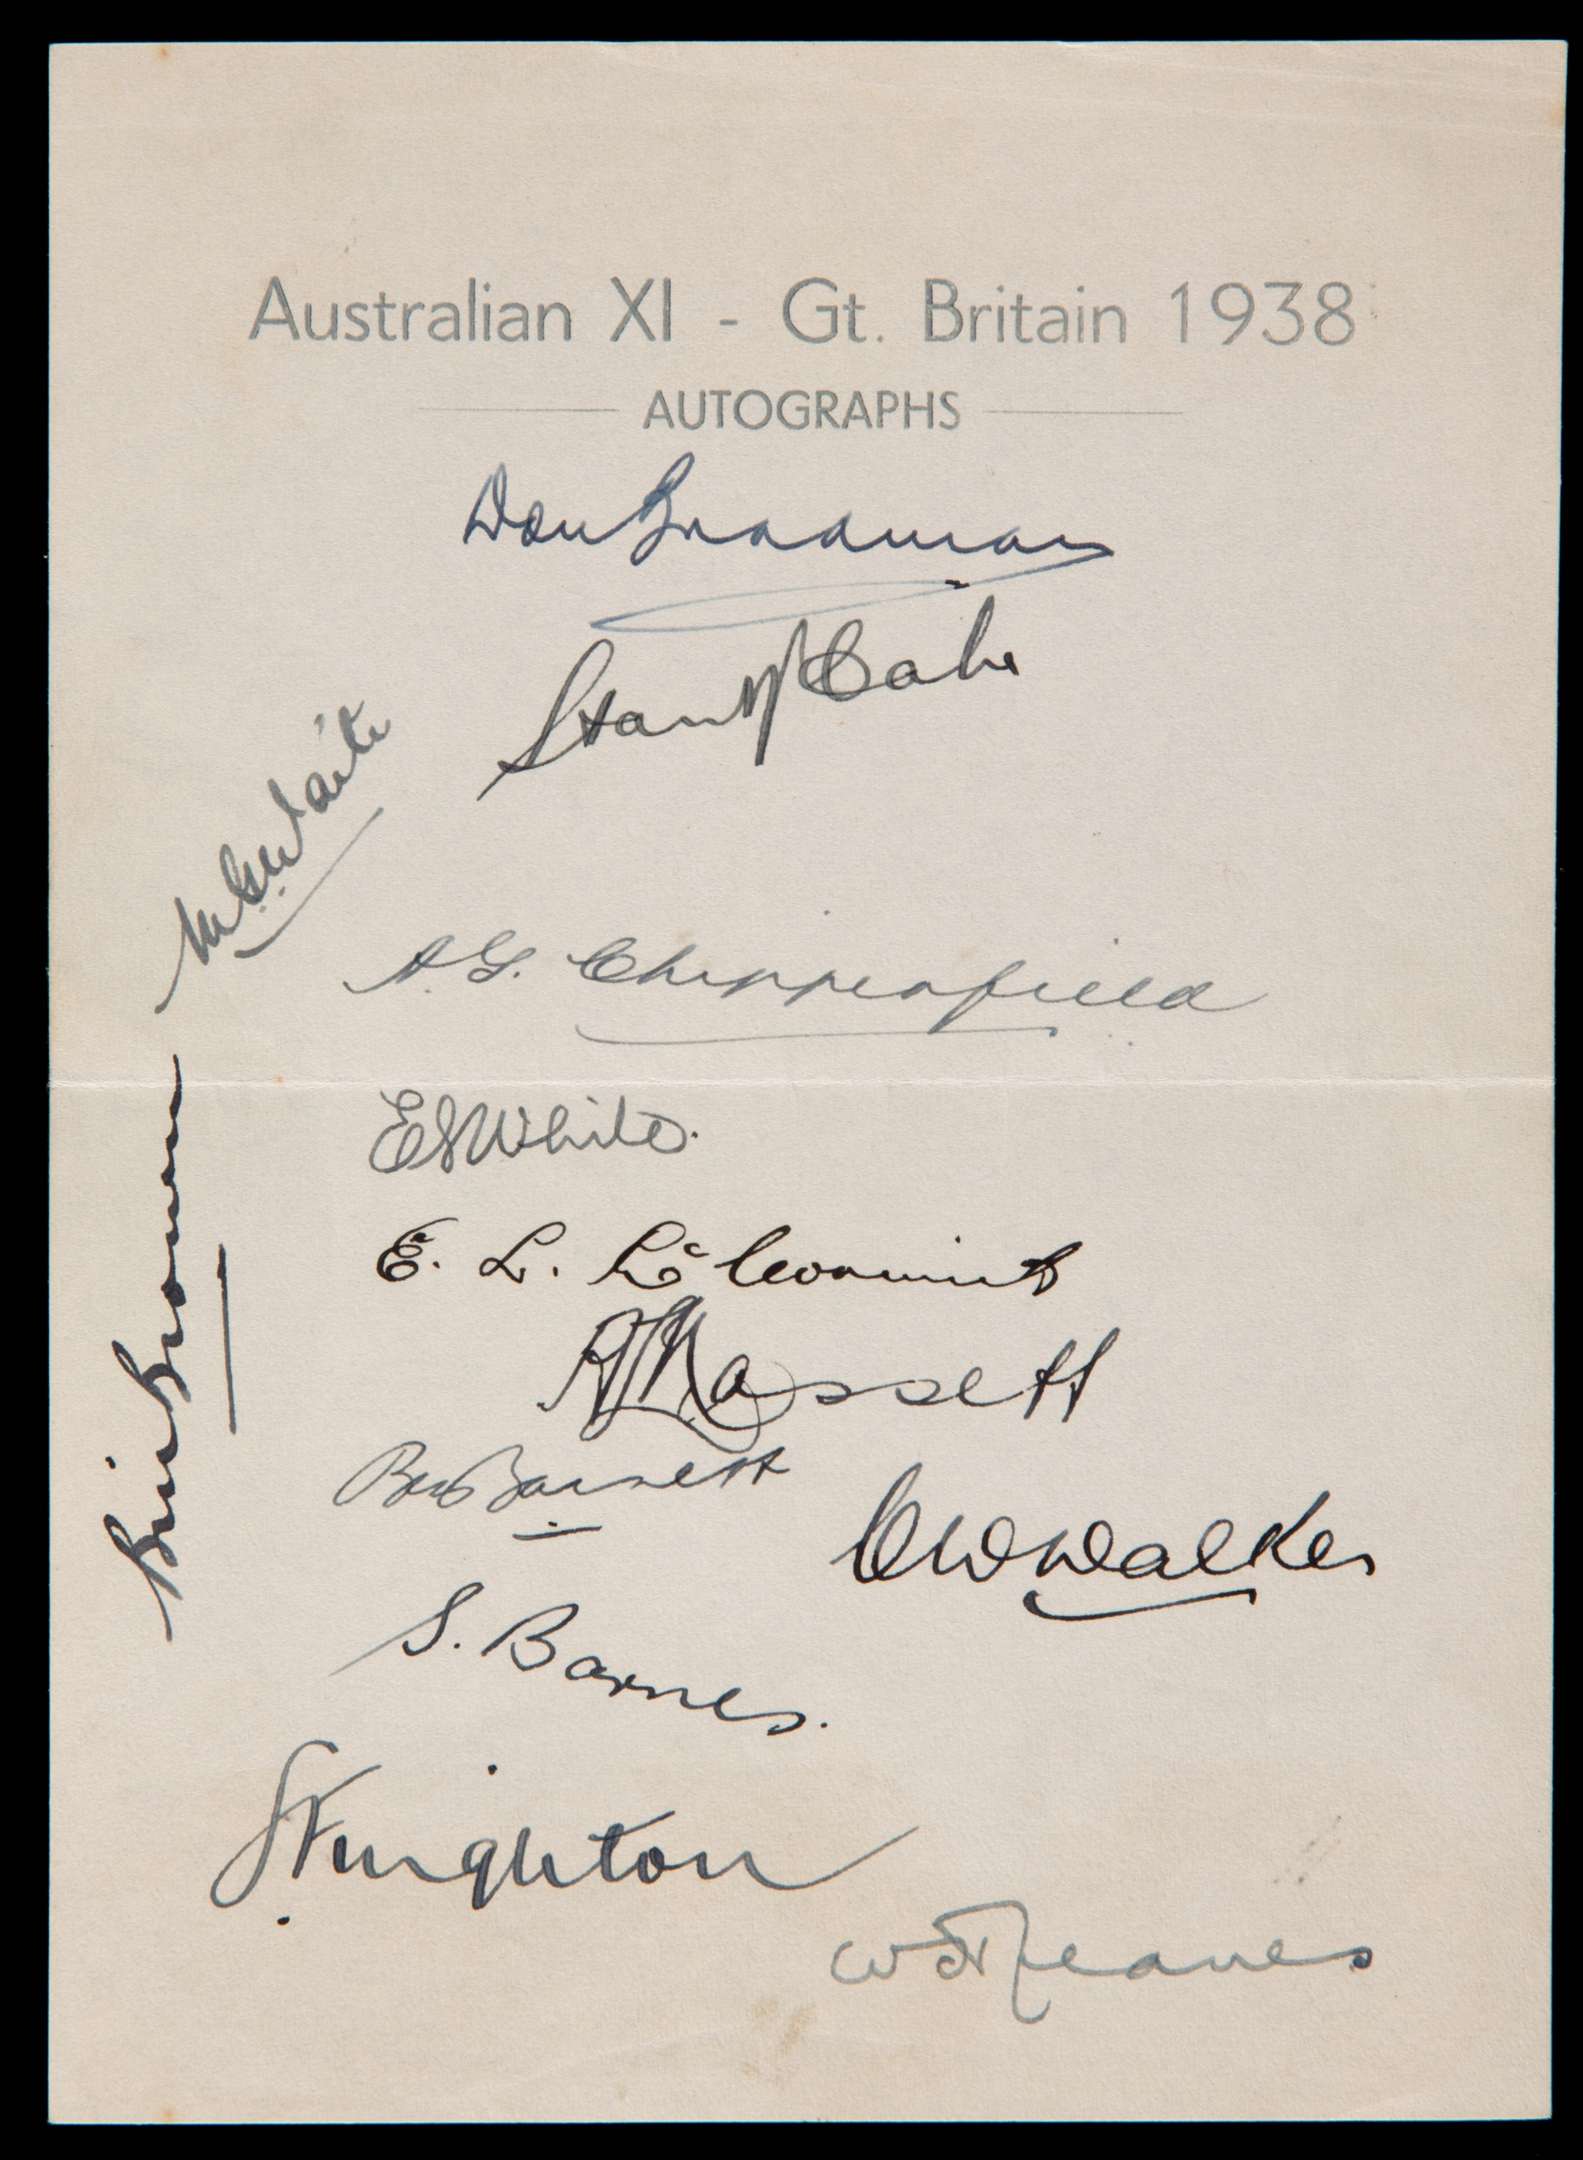 Australian XI - Gt. Britain 1938
AUTOGRAPHS
Don Bradman
Stan McCabe
M G Waite
A. G. Chipperfield
E S White.
E. L. McCormick
Bill Brown
A L Hassett
Ben Barnett
C W Walker
S. Barnes.
W H Jeanes